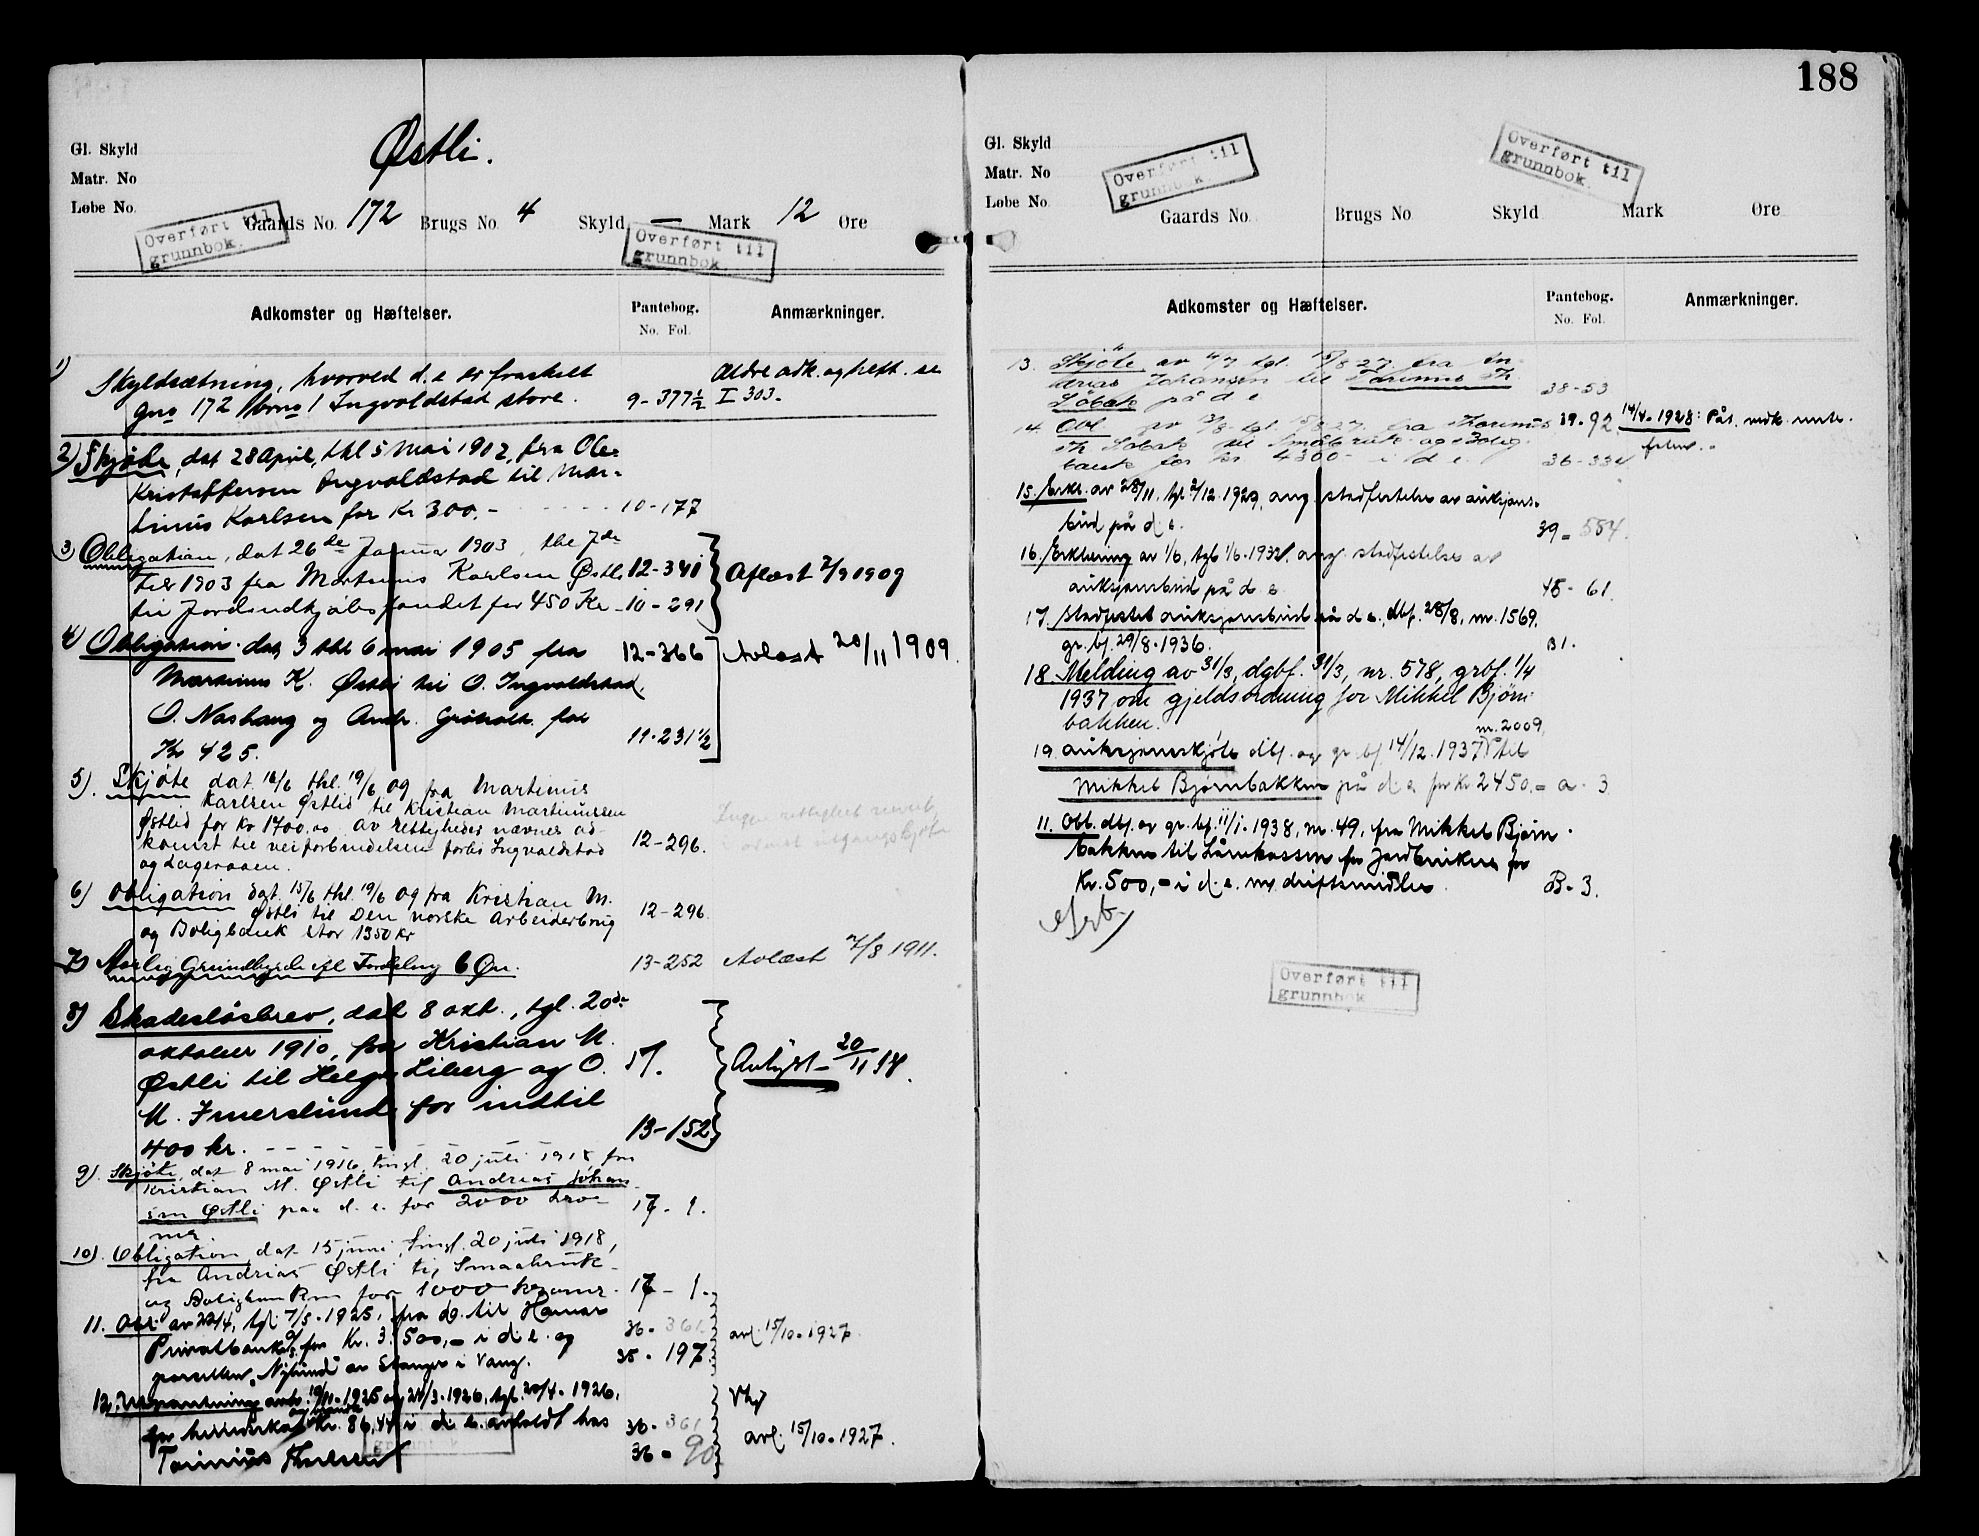 Østli.
Gl. Skyld
Matr. No
Løbe No.
Gaards No. 172 Brugs No. 4 Skyld — Mark 12 Øre
Overført til
grunnbok.
Overført til
grunnbok.
Adkomster og Hæftelser.
Pantebog.
No. Fol.
Anmærkninger.
1) Skyldsætning, hvorved d. e er fraskilt
gno 172 bno 1 Ingvoldstad store. 9-377½
Ældre adk. og heft. se
I 303.
2) Skjöte, dat 28 April, thl 5 Mai 1902, fra Ole
Kristoffersen Ingvoldstad til Mar-
tinus Karlsen for Kr 300.- 10-177
3) Obligation, dat 26de Januar 1903, thl 7de
1903 fra Martinus Karlsen Østli 12-341
til Jordindkjöbsfondet for 450 Kr 10-291
Aflæst 2/9 1909
4) Obligation dat 3 thl 6 mai 1905 fra 12-366
Martinus K. Østli til O. Ingvoldstad,
O. Nashaug og Andr. for
Kr 425. 11-231½
Avlæst 20/11 1909.
5). Skjöte dat 16/6 thl. 19/6 09 fra Martinus
Karlsen Østlid til Kristian Martinussen
Østlid for Kr 1700,00. Av rettigheder nævnes ad-
komst til veiforbindelsen forbi Ingvaldstad
og Lageraaen. 12-296.
6) Obligation dat. 15/6 thl. 19/6 09 fra Kristian M.
Østli til Den norske Arbeiderbrug
og Boligbank stor 1350 kr 12-296.
7) Aarlig Grundbyrde efl Fordeling 6 Øre. 13-252 Avlæst 7/8 1911.
8) Skadeslösbrev, dat 8 okt., tgl. 20de
oktober 1910, fra Kristian M. 17.
Østli til Helge Liberg og O.
M. Imerslund for indtil
400 kr. 13-152
Avlyst 20/11 18.
9). Skjöte, dat 8 mai 1916, tingl. 20 juli 1918 fra
Kristian M. Østli til Andreas Johan-
sen Østli paa d. e. for 2000 kro-
ner. 17-1.
10). Obligation, dat 15 juni, tingl. 20 juli 1918,
fra Andrias Østli til Smaabruk-
og Boligbanken for 1000 kroner. 17-1.
11. Obl. av 22/4, tgl. 7/5-1925, fra do. til Hamar
Privatbank A/S for Kr. 3.500,- i d. e. og 36-361
parsellen "Nylund" av Stanger i Vang. 35-197.
avl. 15/10-1927.
12. Utpantning anh. 19/11-1925 og 24/3-1926, tgl. 20/4-1926,
for herredskat Kr. 86,44 i d. e. avholdt hos 36-361
36-90
avl. 15/10-1927.
188
Gl. Skyld
Matr. No
Løbe No.
Gaards No. Brugs No. Skyld Mark Øre
Overført til
grunnbok.
Overført til
grunnbok.
Adkomster og Hæftelser.
Pantebog.
No. Fol.
Anmærkninger.
13. Skjöte av 4/7 tgl. 15/8 27 fra An-
drias Johansen til Torinus Th.
Sobak på d e 38-53
14. Obl av tgl. 15/8 27 fra Thorinus 39-92.
Th Sobak til Småbruk og Bolig-
banken for kr 4300- i d. e. 36-334
14/4-1928: Påt. vedk. rente.
15. Erkl. av 28/11, tgl. 2/12.1929, ang. stadfestelse av auksjons-
bud på d. e. 39-554.
16. Erklæring av 1/6, tgl. 1/6-1932, ang. stadfestelse av
auksjonsbud på d. e. 45-61.
17. Stadfestet auksjonsbud på d. e., dbf. 28/8, nr. 1569,
gr. bf. 29/8-1936. B1.
18 Melding av 31/3, dgbf. 31/3, nr. 578, grbf. 1/4
1937 om gjeldsordning for Mikkel Bjørn-
bakken.
nr. 2009,
19. Auksjonsskjöte dbf. og gr. bf. 14/12.1937 til
Mikkel Bjørnbakken på d. e. for Kr 2450.- a. 3
11. Obl. dbf. og gr. bf. 11/1-1938, nr. 49, fra Mikkel Bjørn-
bakken til Lånekassen for Jordbrukere for
Kr. 500,- i d. e. m. driftsmidler. B-3.
Overført til
grunnbok